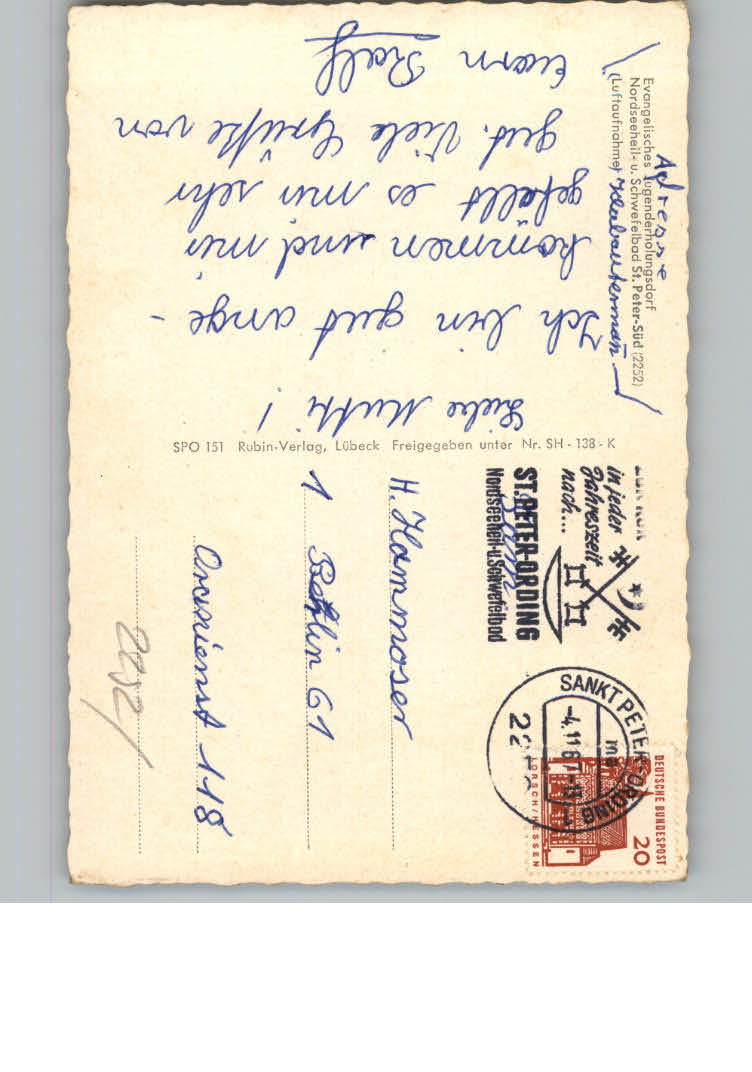 Evangelisches Jugenderholungsdorf
Nordseeheil- u. Schwefelbad St. Peter-Süd (2252)
(Luftaufnahme)
Adresse
Liebe Mutti!
Ich bin gut ange-
kommen und mir
gefällt es mir sehr
gut. Viele Grüße von
Euern Ralf
SPO 151 Rubin-Verlag, Lübeck Freigegeben unter Nr. SH - 138 - K
in jeder
Jahreszeit
nach...
ST. PETER-ORDING
Nordseeheil- u. Schwefelbad
SANKT PETER-ORDING
-4.11.67
DEUTSCHE BUNDESPOST
20
LORSCH/HESSEN
H. Hammoser
1 Berlin 61
118
2252